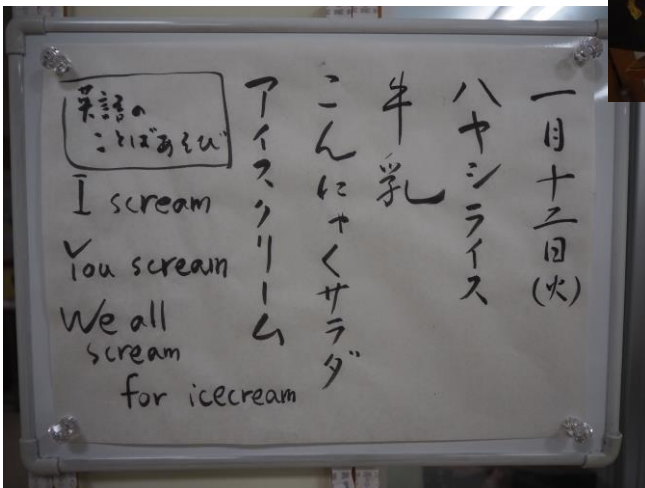 一月十二日(火)
ハヤシライス
牛乳
こんにゃくサラダ
アイスクリーム
英語の
ことばあそび
I scream
You scream
We all
scream
for icecream